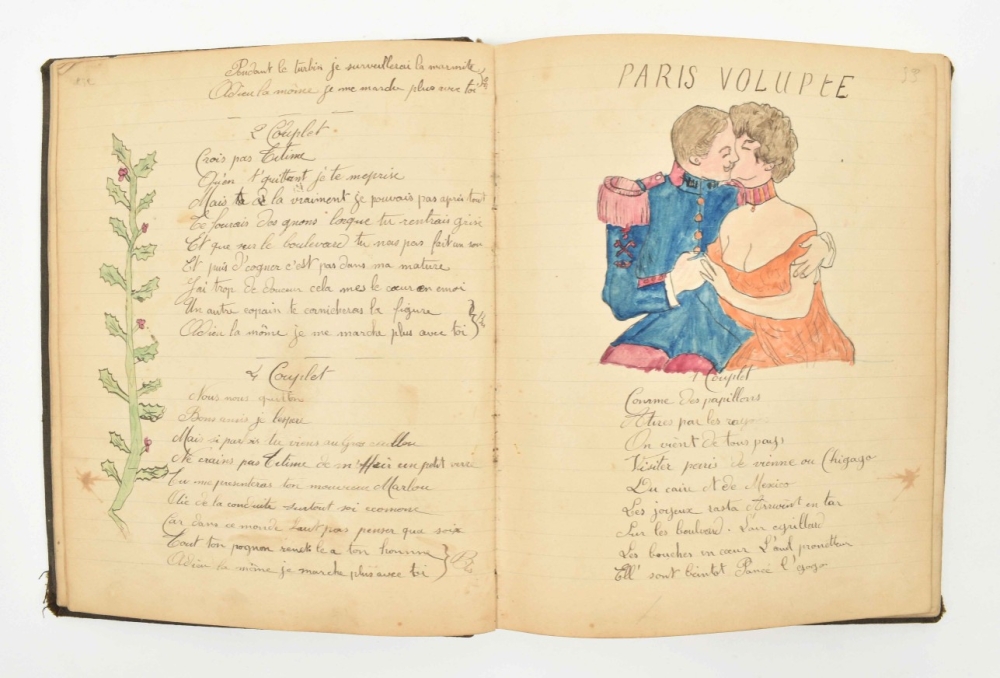 Pendant le turbin je surveillerai la marmite
Adieu la môme je me marche plus avec toi
2 Couplet
Crois pas Titine
Qu'en t'quittant je te meprise
Mais à la vraiment je pouvais pas apres tout
Te fourais des gnons lorque tu rentrais grise
Et que sur le boulevard tu nas pas fait un sou
Et puis d'cogner c'est pas dans ma nature
J'ai trop de douceur cela mes le cœur en emoi
Un autre copain te
la figure
Adieu la môme je me marche plus avec toi
Couplet
Nous nous quittons
Bons amis je lespere
Mais si par
Ne crains pas Titine de m'
un petit verre
Tu me presenteras ton nouveau Marlou
de la conduite surtout soi econome
Car dans ce monde faut pas penser qua soix
Tout ton pognon rends le a ton homme
Bis
Adieu la môme je marche plus avec toi
33
PARIS VOLUPtE
1 Couplet
Comme des papillons
Atires par les rayo
On vient de tous pays
Visiter paris de vienne ou Chigago
Du caire
de Mexico
Les joyeux rasta
Sur les boulvard. L'air egrillard
Les bouches en cœur L'œuil prometteur
Ell' sont bientot